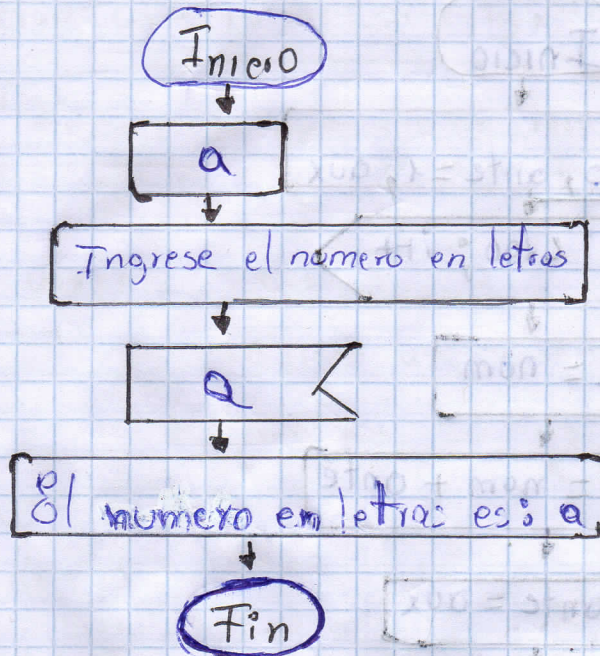 Inicio
a
Ingrese el numero en letras
a
El numero en letras es: a
Fin